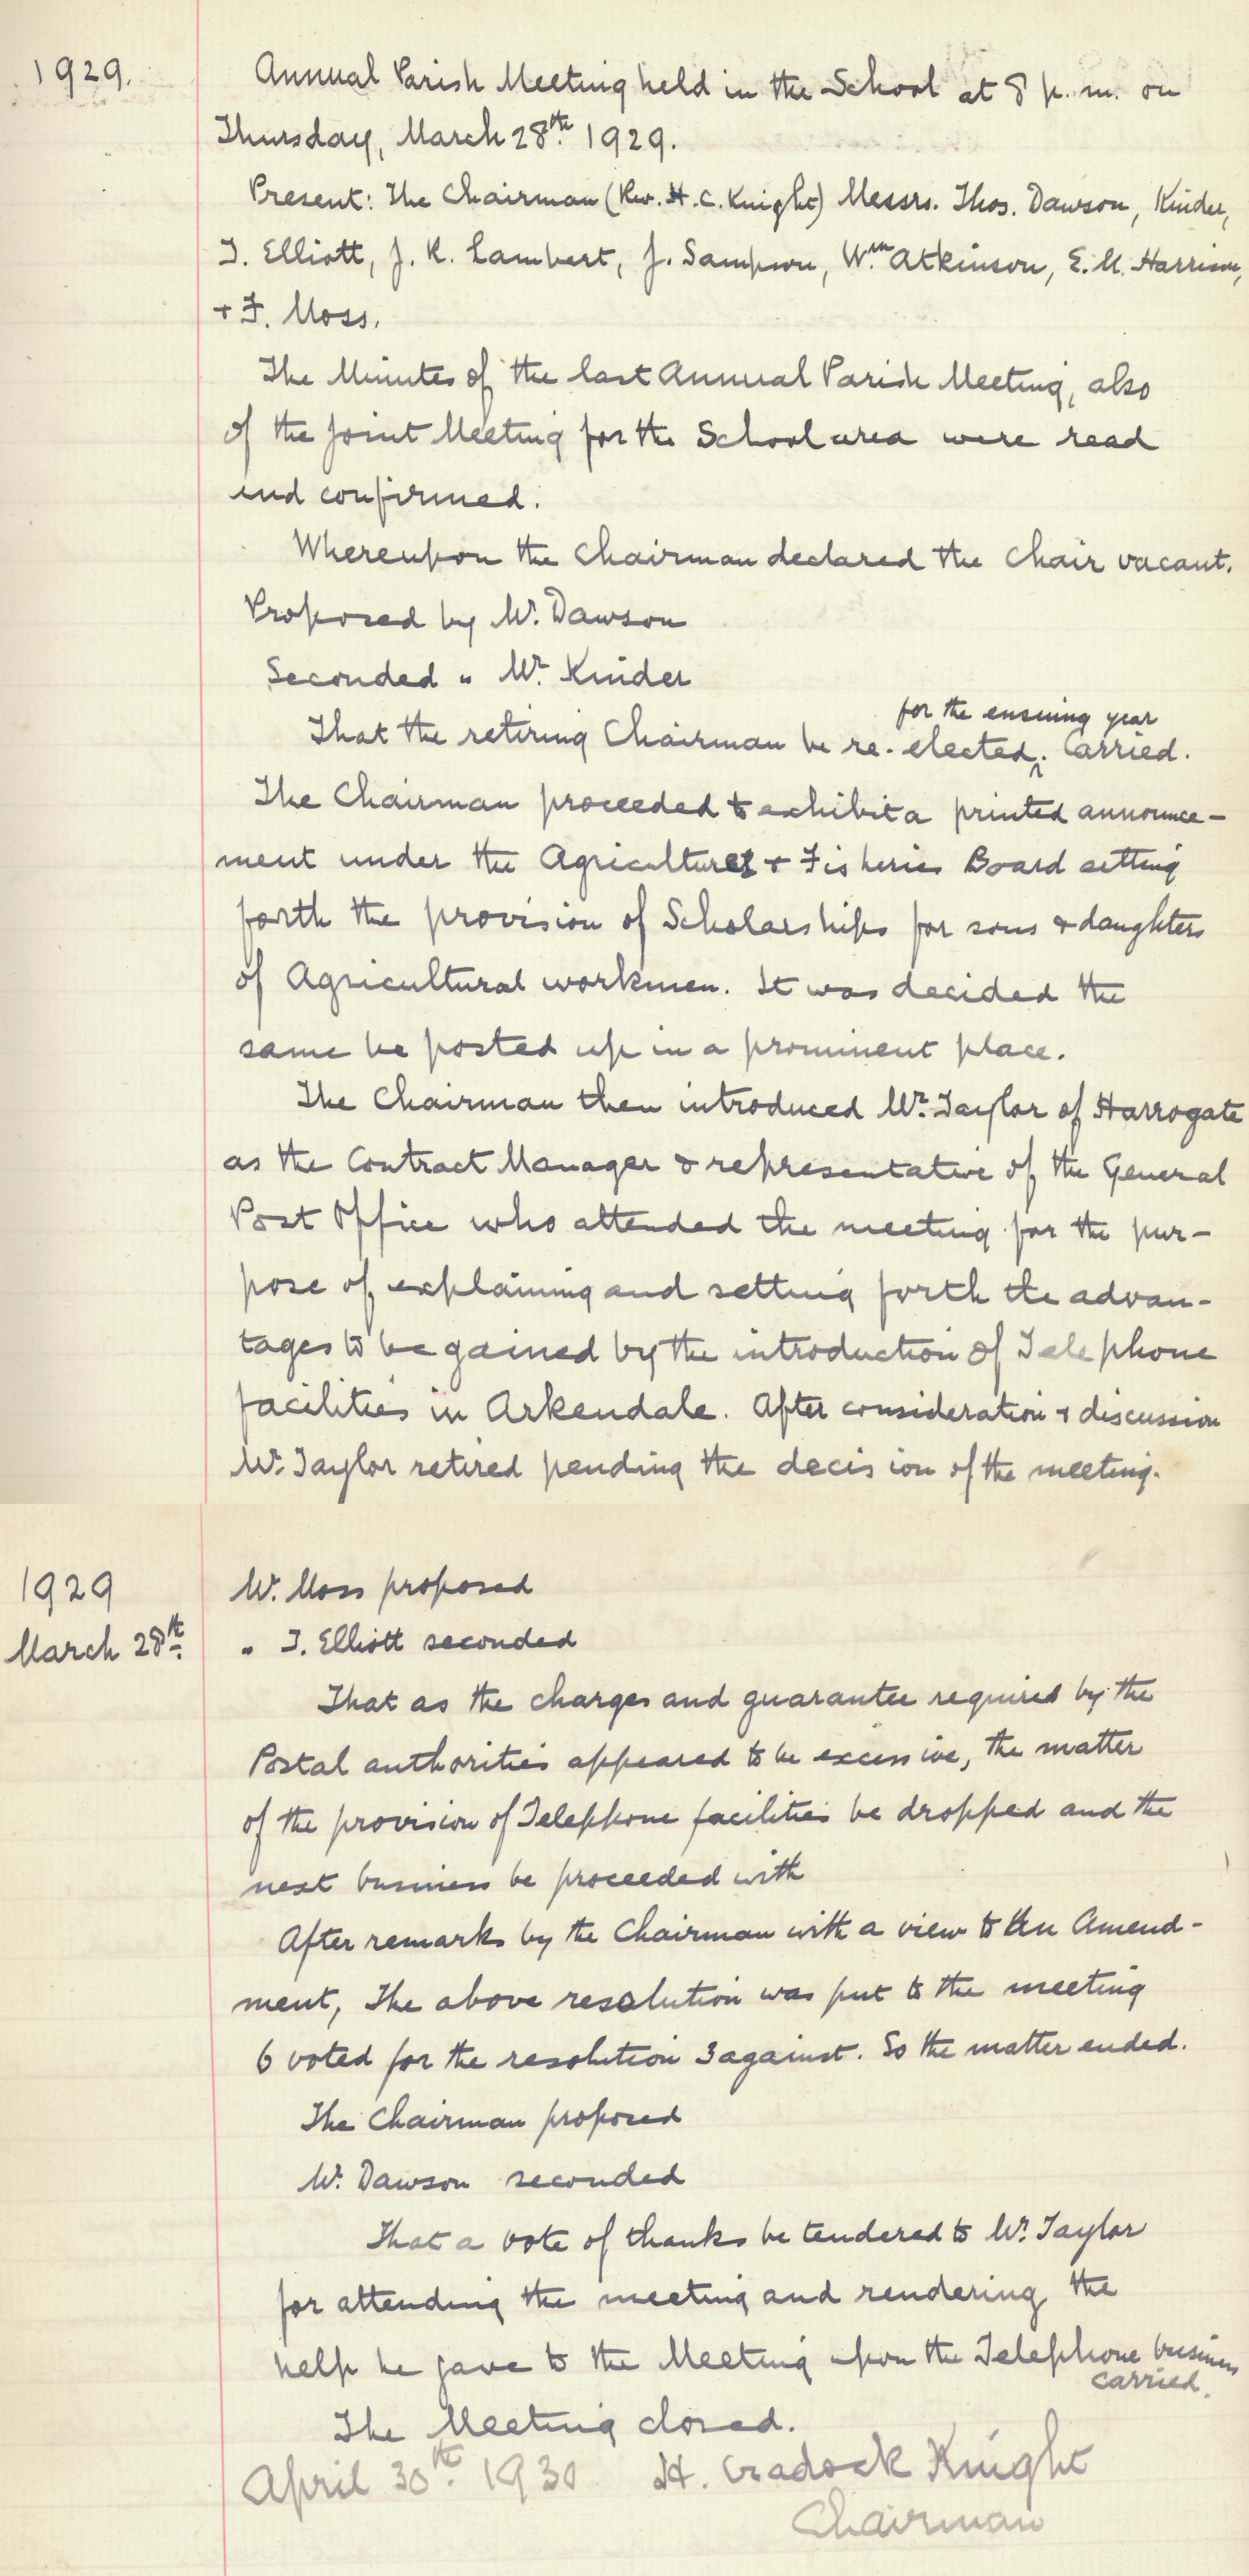 1929.
Annual Parish Meeting held in the School at 8 p.m. on
Thursday, March 28th. 1929.
Present: The Chairman (Rev. H. C. Knight) Messrs. Thos. Dawson, Kinder,
T. Elliott, J. R. Lambert, J. Sampson, Wm. Atkinson, E. M. Harrison,
+ F. Moss.
The Minutes of the last Annual Parish Meeting, also
of the Joint Meeting for the School area were read
and confirmed.
Whereupon the Chairman declared the Chair vacant.
Proposed by Mr. Dawson
Seconded " Mr. Kinder
for the ensuing year
That the retiring Chairman be re-elected. Carried.
The Chairman proceeded to exhibit a printed announce-
ment under the Agriculture + Fisheries Board setting
forth the provision of Scholarships for sons & daughters
of Agricultural workmen. It was decided the
same be posted up in a prominent place.
The Chairman then introduced Mr. Taylor of Harrogate
as the Contract Manager & representative of the General
Post Office who attended the meeting for the pur-
pose of explaining and setting forth the advan-
tages to be gained by the introduction of Telephone
facilities in Arkendale. After consideration & discussion
Mr. Taylor retired pending the decision of the meeting.
1929
March 28th.
Mr. Moss proposed
" T. Elliott seconded
That as the charges and guarantee required by the
Postal authorities appeared to be excessive, the matter
of the provision of Telephone facilities be dropped and the
next business be proceeded with
After remarks by the Chairman with a view to an Amend-
ment, The above resolution was put to the meeting
6 voted for the resolution 3 against. So the matter ended.
The Chairman proposed
Mr. Dawson seconded
That a vote of thanks be tendered to Mr. Taylor
for attending the meeting and rendering the
help he gave to the Meeting upon the Telephone business
carried.
The Meeting closed.
April 30th. 1930 H. Cradock Knight
Chairman